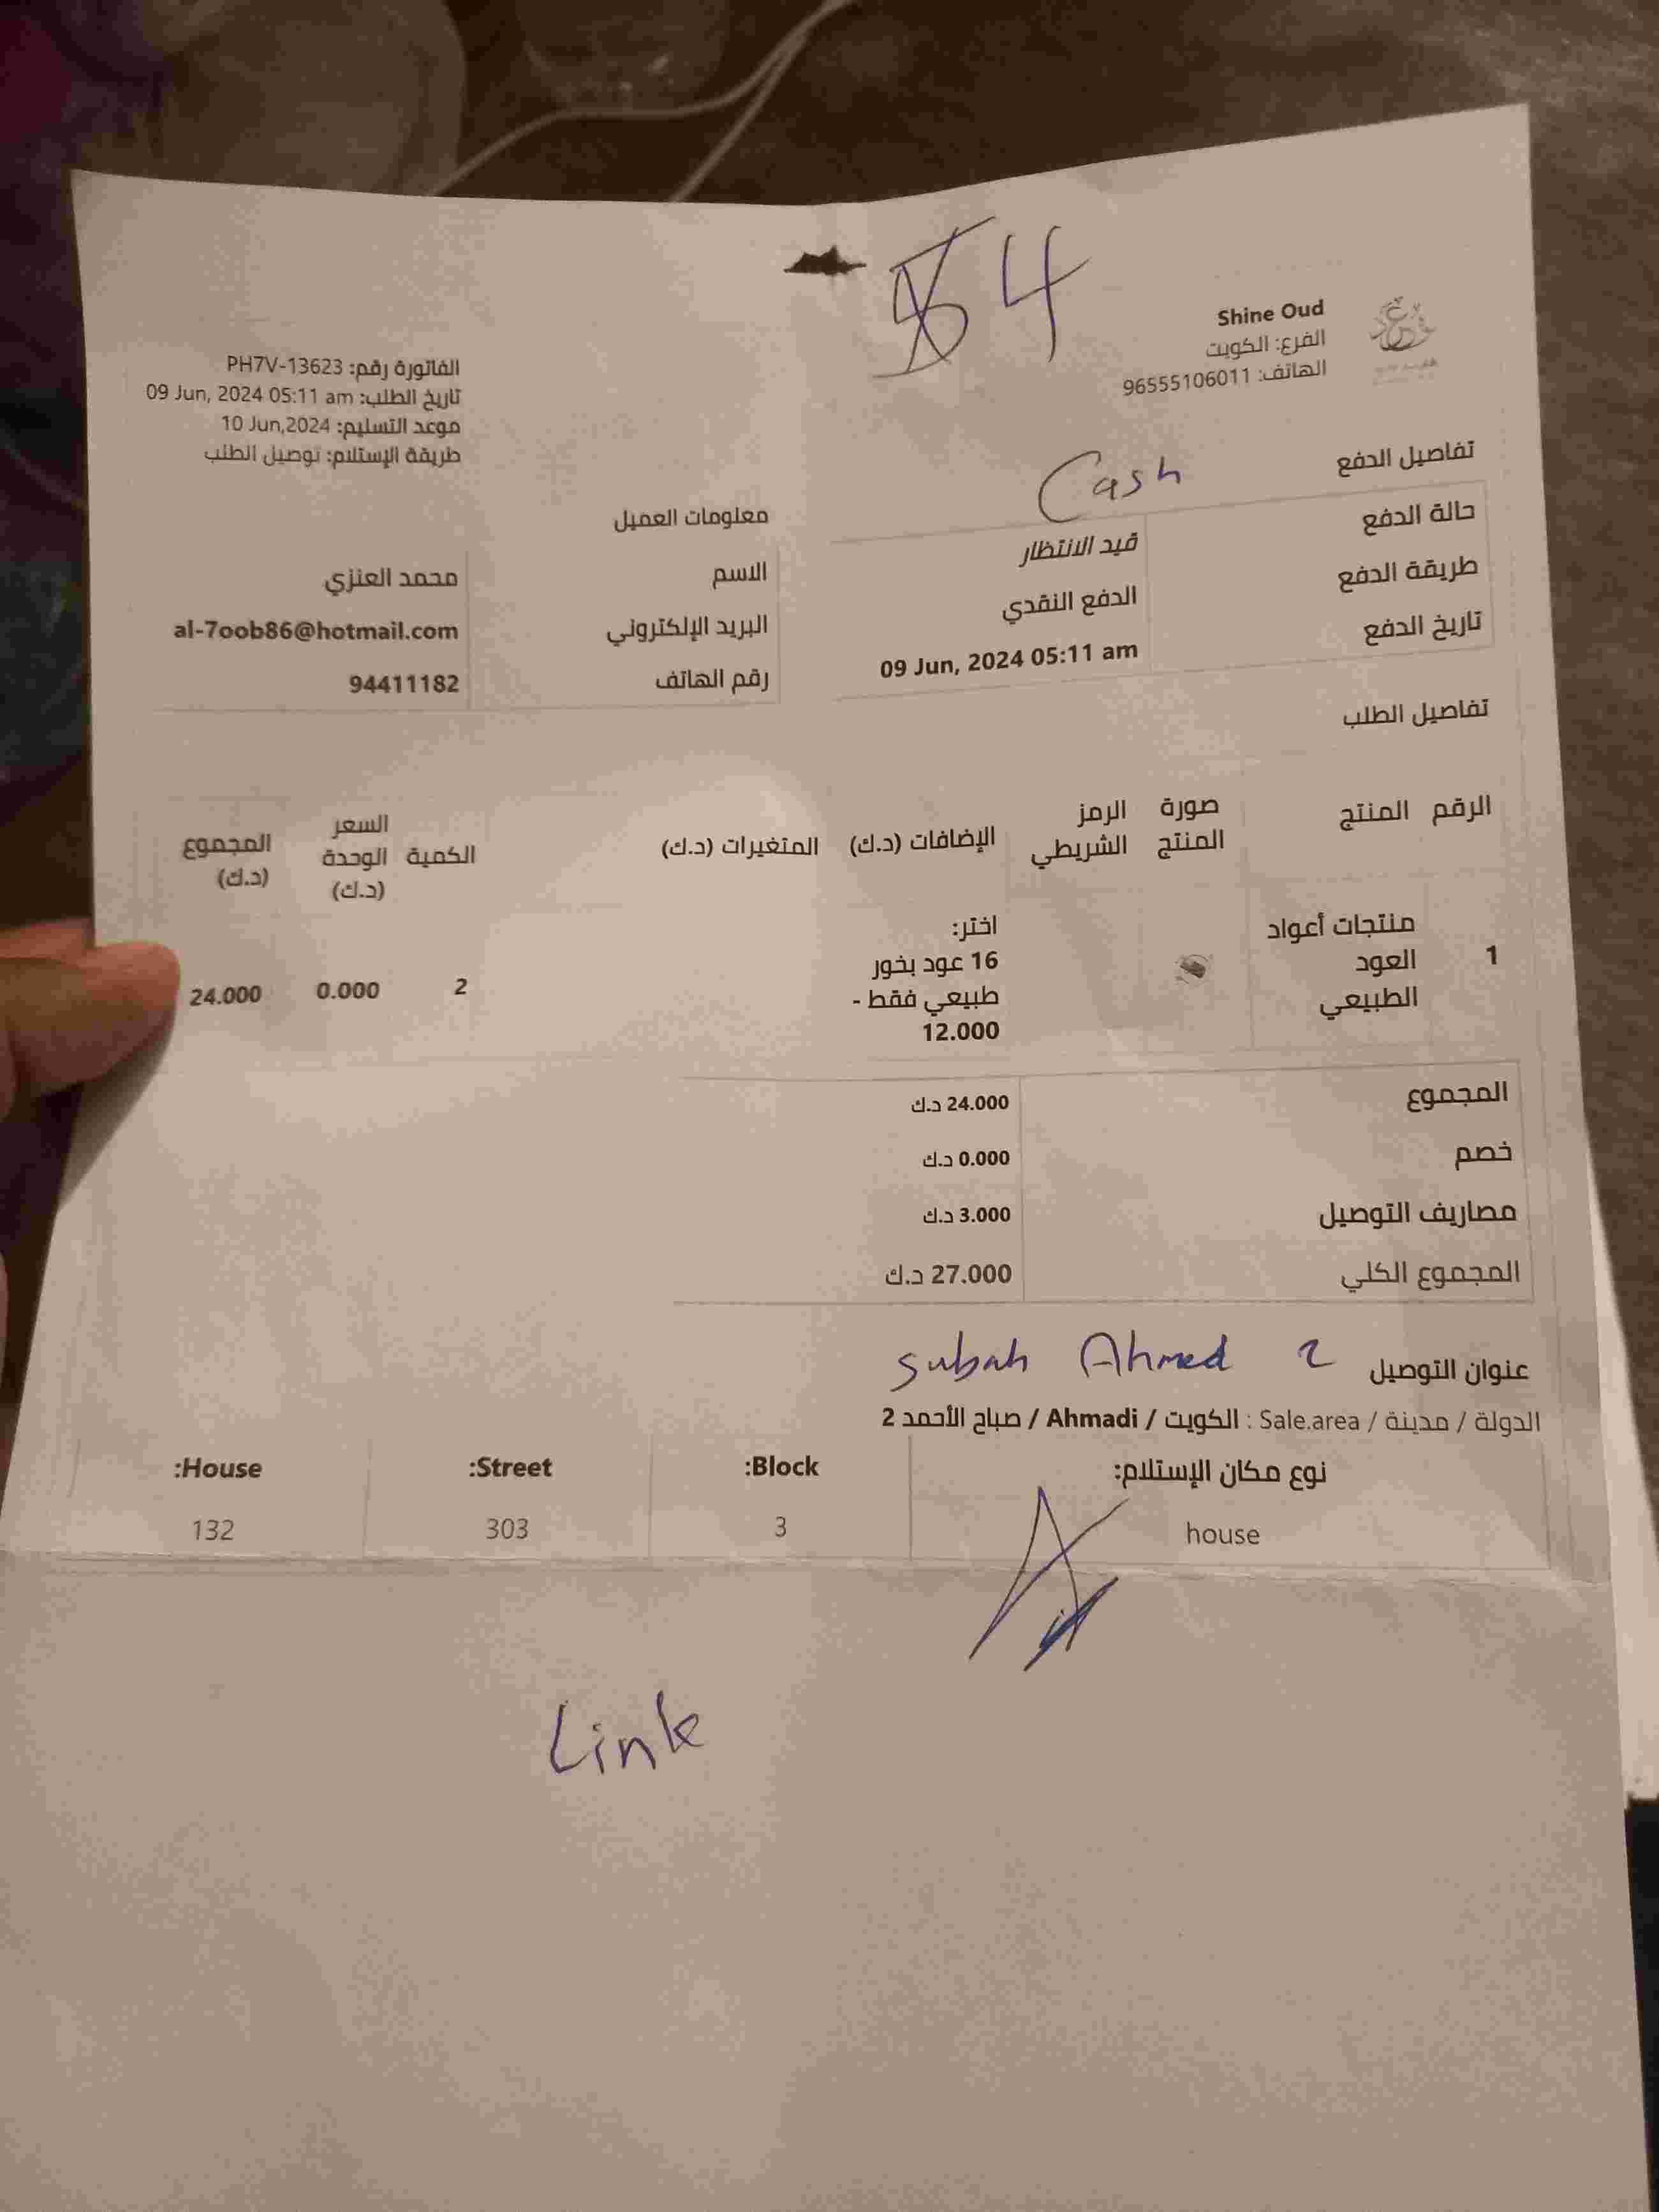 4
Shine Oud
الفرع: الكويت
الهاتف: 96555106011
الفاتورة رقم: PH7V-13623
تاريخ الطلب: 09 Jun, 2024 05:11 am
موعد التسليم: 10 Jun,2024
طريقة الإستلام: توصيل الطلب
تفاصيل الدفع
Cash
حالة الدفع قيد الانتظار
طريقة الدفع الدفع النقدي
تاريخ الدفع 09 Jun, 2024 05:11 am
معلومات العميل
الاسم محمد العنزي
البريد الإلكتروني al-7oob86@hotmail.com
رقم الهاتف 94411182
تفاصيل الطلب
الرقم المنتج صورة المنتج الرمز الشريطي الإضافات (د.ك) المتغيرات (د.ك) الكمية السعر الوحدة (د.ك) المجموع (د.ك)
1 منتجات أعواد العود الطبيعي اختر: 16 عود بخور طبيعي فقط - 12.000 2 0.000 24.000
المجموع 24.000 د.ك
خصم 0.000 د.ك
مصاريف التوصيل 3.000 د.ك
المجموع الكلي 27.000 د.ك
عنوان التوصيل
subah Ahmed 2
الدولة / مدينة / Sale.area : الكويت / Ahmadi / صباح الأحمد 2
نوع مكان الإستلام: Block: Street: House:
house 3 303 132
Link